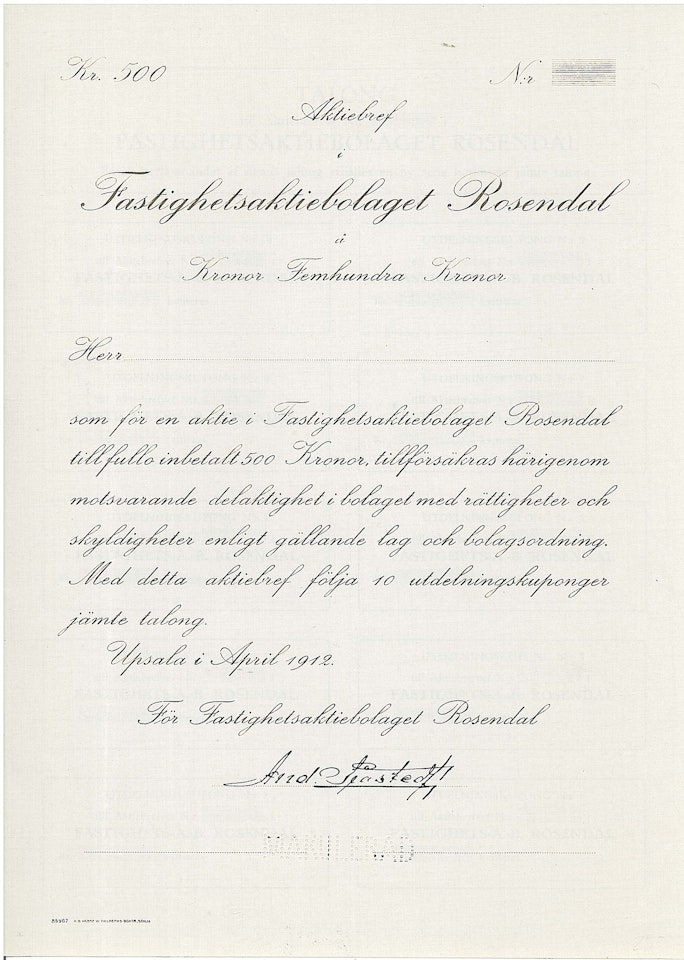 Kr. 500
N:r
Aktiebref
i
Fastighetsaktiebolaget Rosendal
à
Kronor Femhundra Kronor
Herr
som för en aktie i Fastighetsaktiebolaget Rosendal
till fullo inbetalt 500 Kronor, tillförsäkras härigenom
motsvarande delaktighet i bolaget med rättigheter och
skyldigheter enligt gällande lag och bolagsordning.
Med detta aktiebref följa 10 utdelningskuponger
jämte talong.
Upsala i April 1912.
För Fastighetsaktiebolaget Rosendal
And.
MAKULERAD
85967